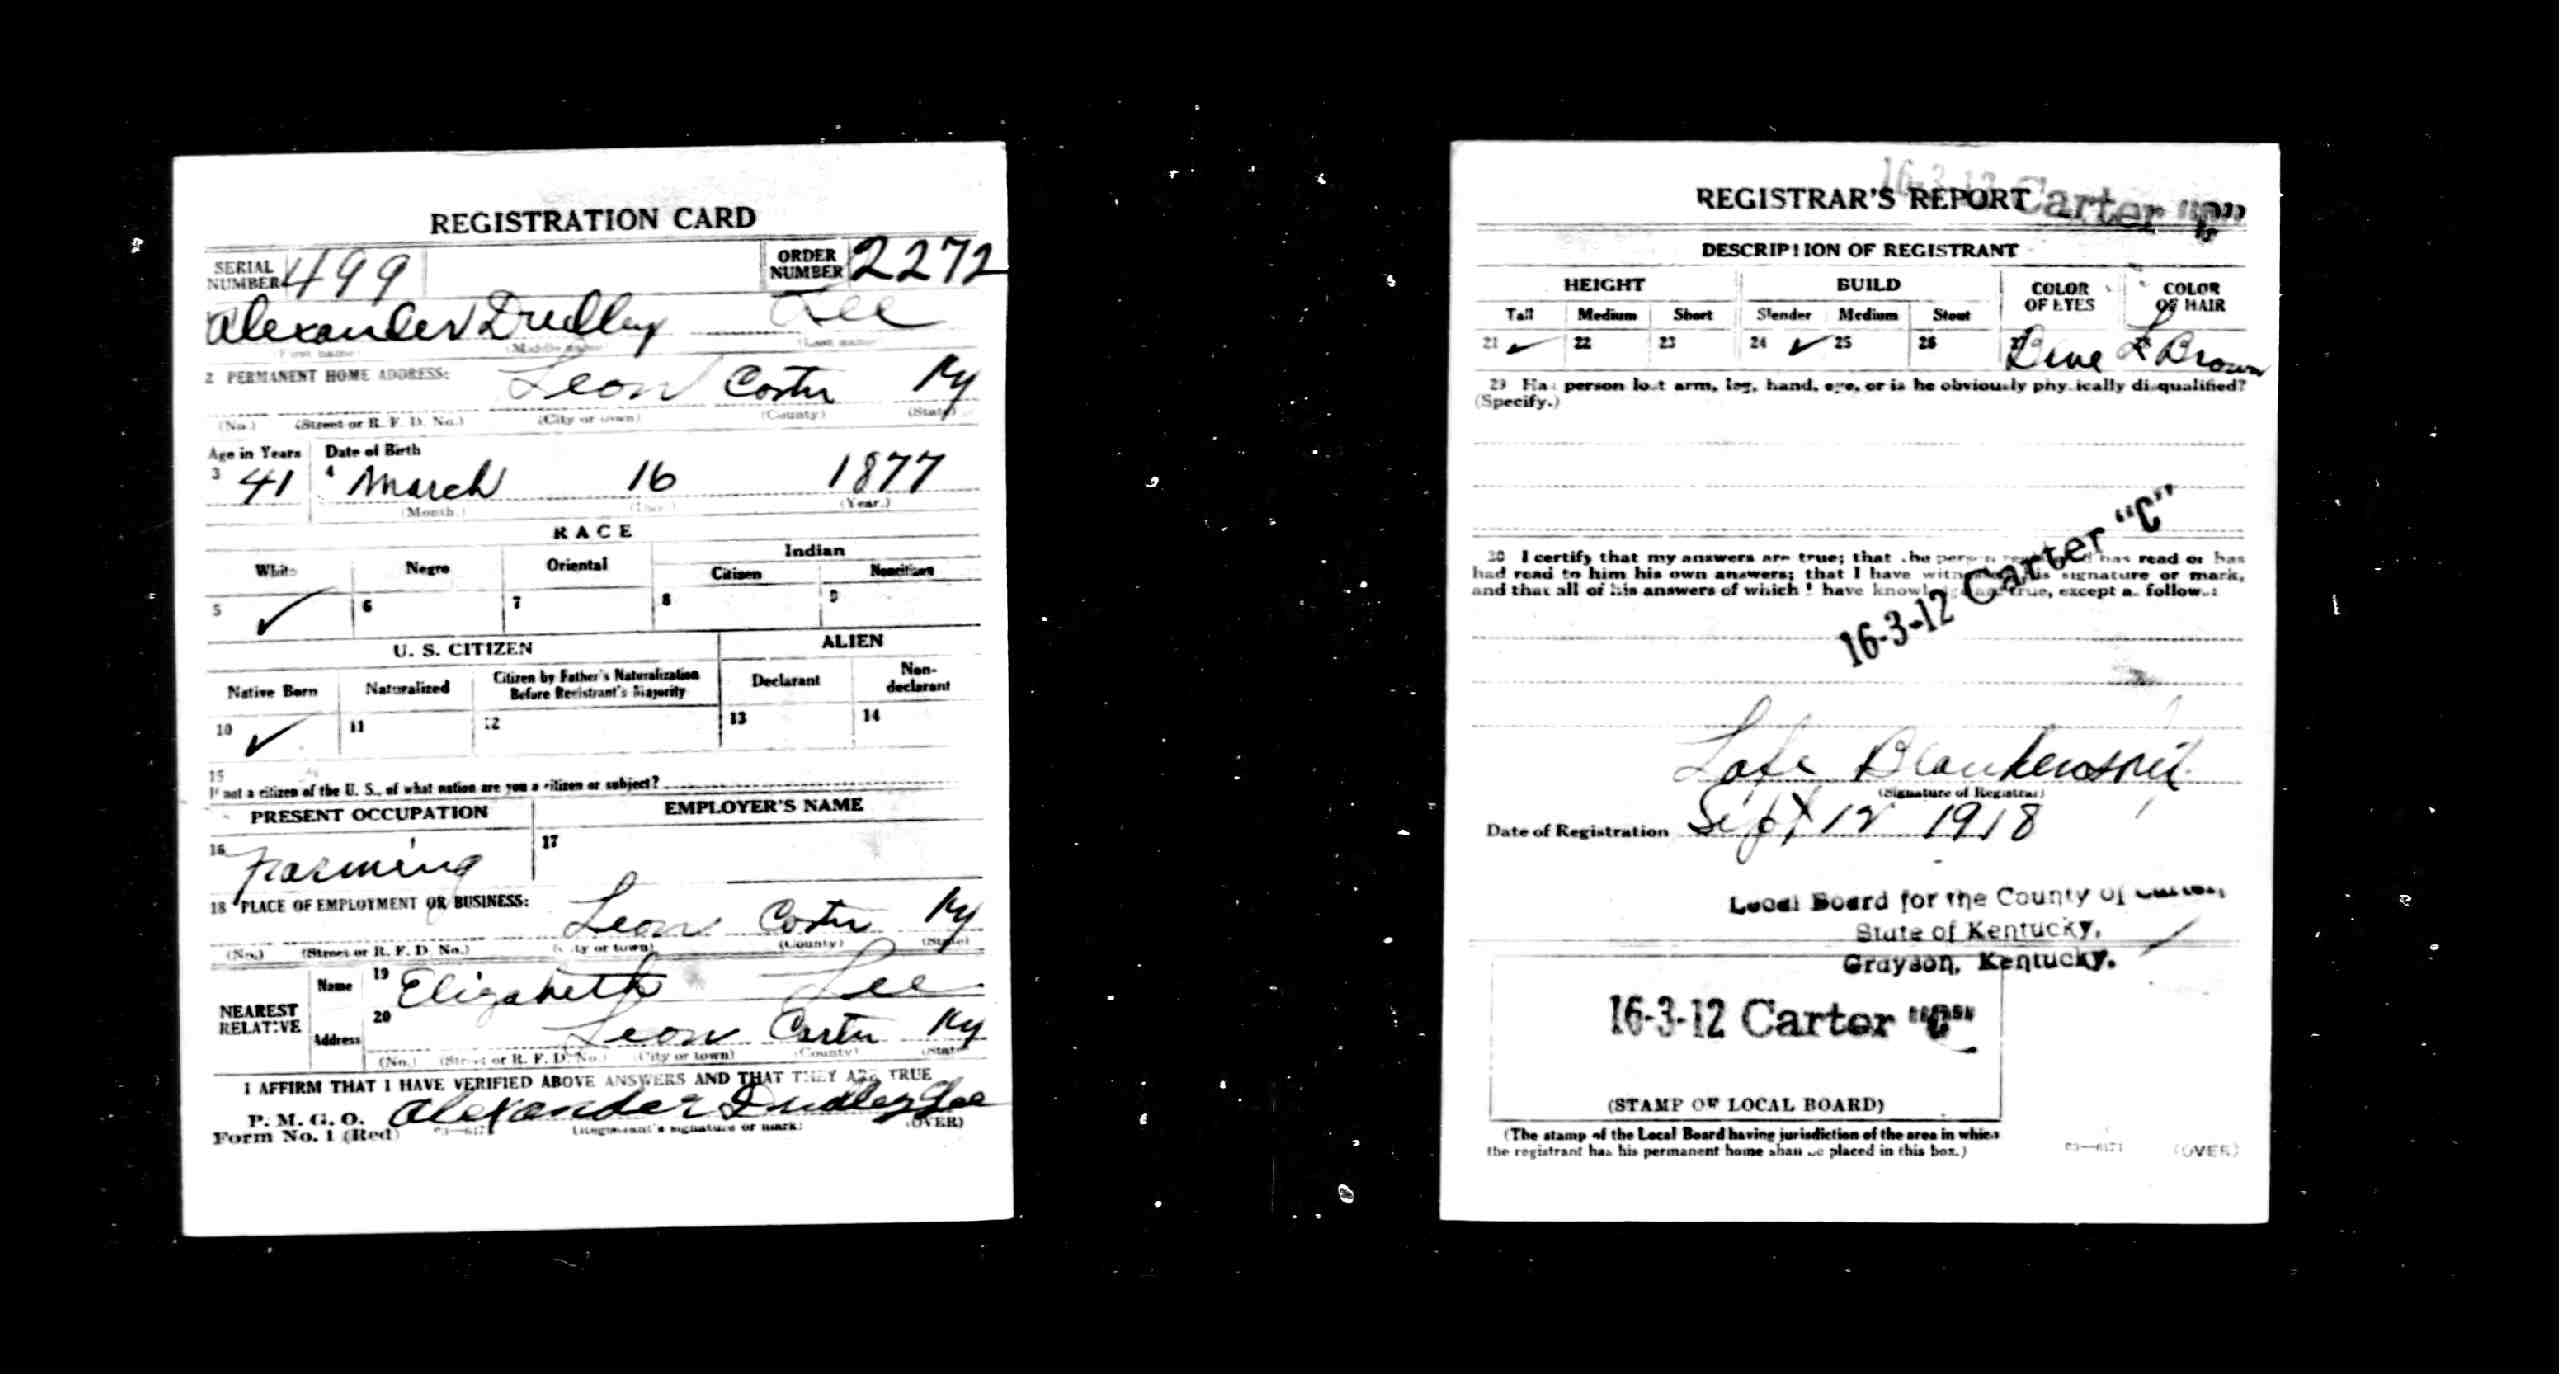 REGISTRATION CARD
SERIAL NUMBER 499 ORDER NUMBER 2272
Alexander Dudley Lee
(First name) (Middle name) (Last name)
2 PERMANENT HOME ADDRESS:
Leon Carter Ky
(No.) (Street or R. F. D. No.) (City or town) (County) (State)
Age in Years Date of Birth
3 41 4 March 16 1877
(Month.) (Day.) (Year.)
RACE
White Negro Oriental Indian
Citizen Noncitizen
5 ✓ 6 7 8 9
U. S. CITIZEN ALIEN
Native Born Naturalized Citizen by Father's Naturalization Before Registrant's Majority Declarant Non-declarant
10 ✓ 11 12 13 14
15
If not a citizen of the U. S., of what nation are you a citizen or subject?
PRESENT OCCUPATION EMPLOYER'S NAME
16 Farming 17
18 PLACE OF EMPLOYMENT OR BUSINESS:
Leon Carter Ky
(No.) (Street or R. F. D. No.) (City or town) (County) (State)
NEAREST RELATIVE
Name 19 Elizabeth Lee
Address 20 Leon Carter Ky
(No.) (Street or R. F. D. No.) (City or town) (County) (State)
I AFFIRM THAT I HAVE VERIFIED ABOVE ANSWERS AND THAT THEY ARE TRUE
P. M. G. O.
Form No. 1 (Red) 03—6171 Alexander Dudley Lee
(Registrant's signature or mark) (OVER)
16-3-12 Carter "C"
REGISTRAR'S REPORT
DESCRIPTION OF REGISTRANT
HEIGHT BUILD COLOR OF EYES COLOR OF HAIR
Tall Medium Short Slender Medium Stout
21 ✓ 22 23 24 ✓ 25 26 27 Blue 28 L Brown
29 Has person lost arm, leg, hand, eye, or is he obviously physically disqualified?
(Specify.)
30 I certify that my answers are true; that the person registered has read or has
had read to him his own answers; that I have witnessed his signature or mark,
and that all of his answers of which I have knowledge are true, except as follows:
16-3-12 Carter "C"
Lafe
(Signature of Registrar)
Date of Registration Sept 12 1918
Local Board for the County of Carter,
State of Kentucky,
Grayson, Kentucky.
16-3-12 Carter "C"
(STAMP OF LOCAL BOARD)
(The stamp of the Local Board having jurisdiction of the area in which
the registrant has his permanent home shall be placed in this box.)
03—6171 (OVER)